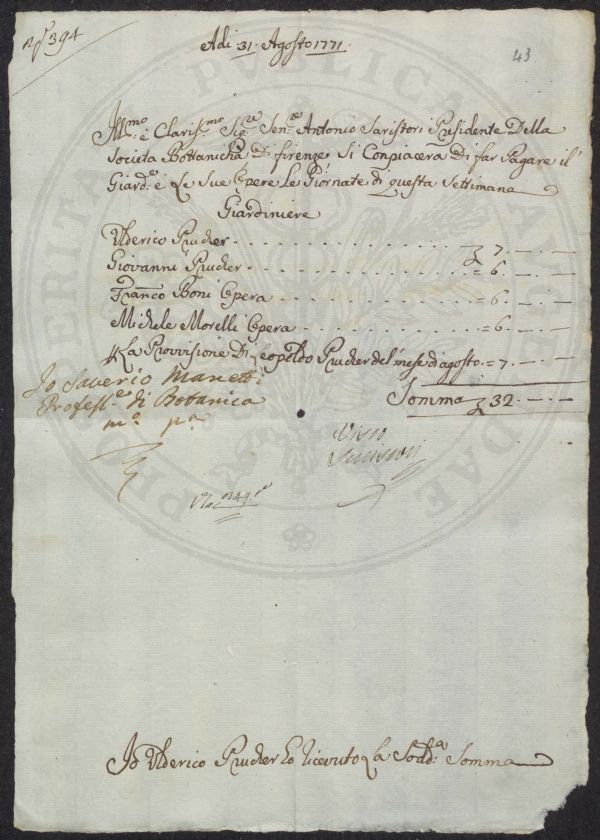 nº 394
Adi 31. Agosto 1771.
43
Ill.mo e Clariss.mo Sig.re Sen.re Antonio Saristori Presidente Della
Societa Bottanicha Di firenze Si Conpiacera Di far Pagare il
Giard.e e Le Sue Opere Le Giornate di questa Settimana
Giardiniere
Ulderico Prucker 7. — . —
Giovanni Prucker = 6. — . —
Franco Boni Opera = 6. — . —
Michele Morelli Opera = 6. — . —
La Provisione Di Leopoldo Prucker del mese di agosto = 7. — . —
Somma 32. — . —
Io Saverio Manetti
Profess.e di Botanica
m.o p.a
Visto
PRO VERITATE PVBLICAQVE
Io Ulderico Prucker Ho ricevuto La Sodd.a Somma